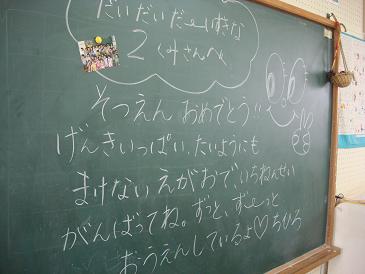 だいだいだ〜いすきな
2くみさんへ
そつえん おめでとう!!
げんきいっぱい、たいようにも
まけない えがおで、いちねんせい
がんばってね。ずっと、ず〜っと
おうえんしているよ♡ちひろ